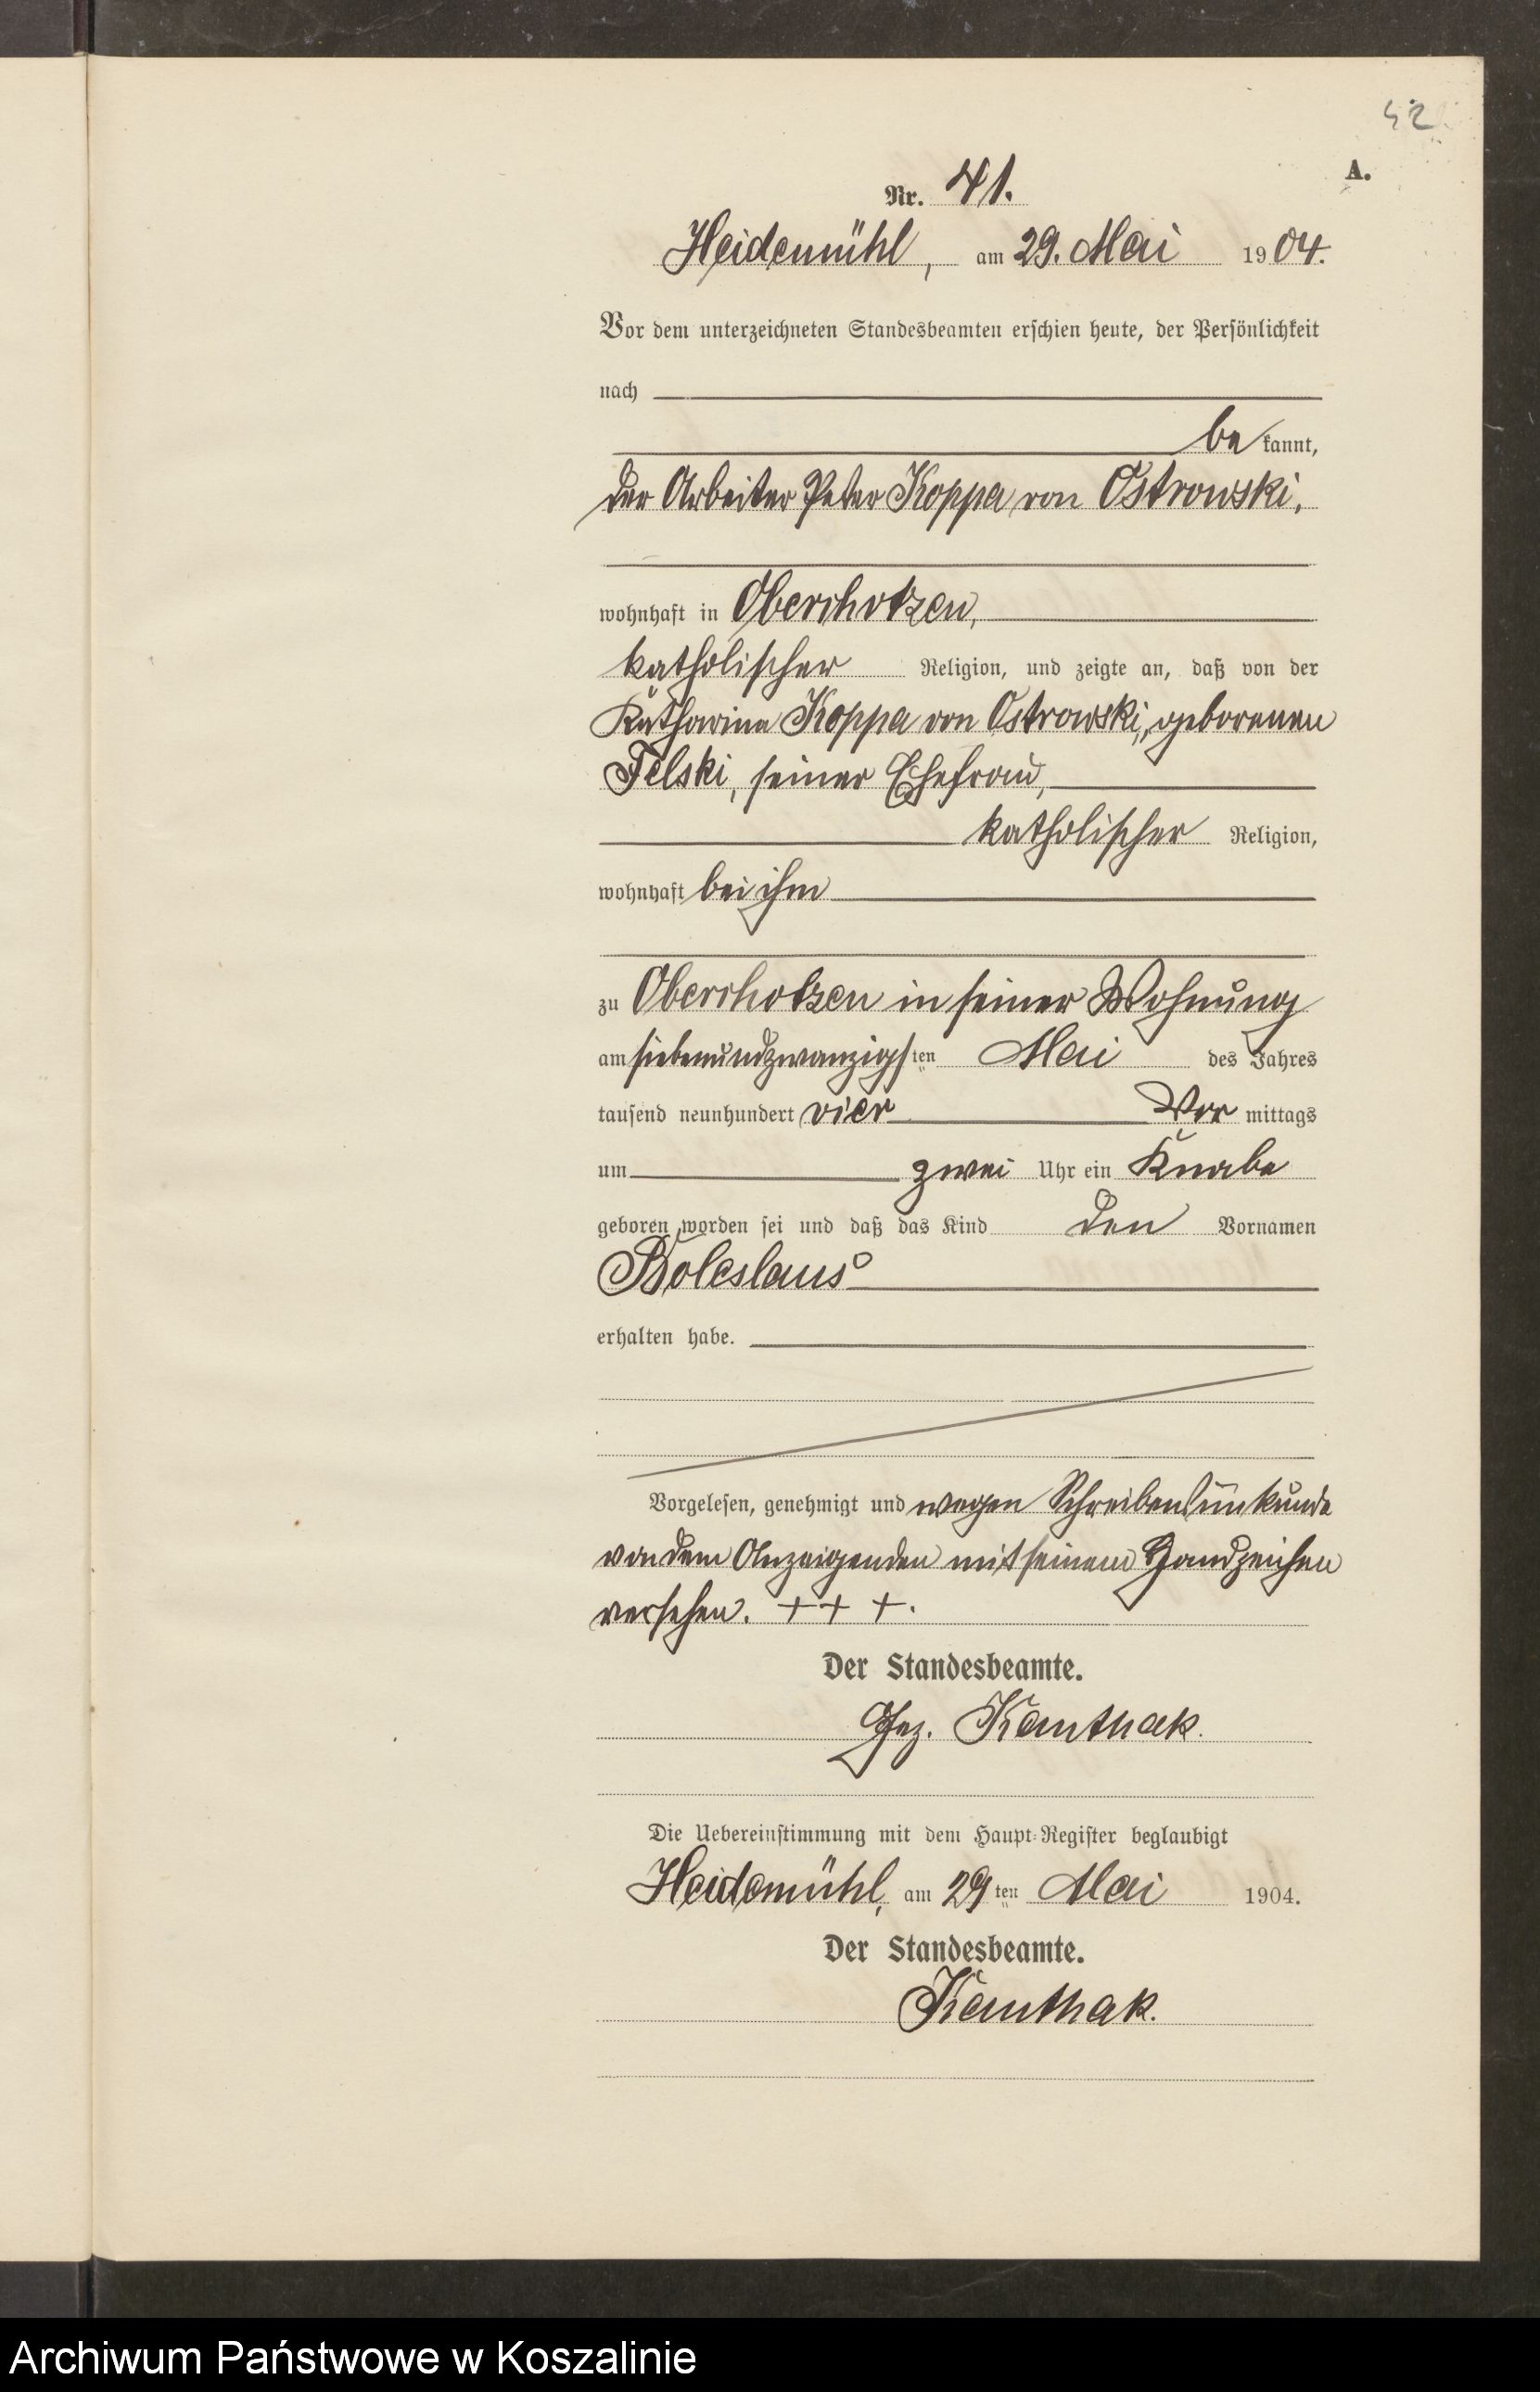 42
A.
Nr. 41.
Heidemühl, am 29. Mai 1904.
Vor dem unterzeichneten Standesbeamten erschien heute, der Persönlichkeit
nach
be kannt,
der Arbeiter Peter Koppa von Ostrowski,
wohnhaft in Oberchotzen,
katholischer Religion, und zeigte an, daß von der
Katharina Koppa von Ostrowski, geborenen
Felski, seiner Ehefrau,
katholischer Religion,
wohnhaft bei ihm
zu Oberchotzen in seiner Wohnung
am siebenundzwanzigsten Mai des Jahres
tausend neunhundert vier Vor mittags
um zwei Uhr ein Knabe
geboren worden sei und daß das Kind den Vornamen
Boleslaus
erhalten habe.
Vorgelesen, genehmigt und wegen Schreibensunkunde
von dem Anzeigenden mit seinem Handzeichen
versehen. + + +.
Der Standesbeamte.
Gez. Kanthak.
Die Uebereinstimmung mit dem Haupt-Register beglaubigt
Heidemühl, am 29 ten Mai 1904.
Der Standesbeamte.
Kanthak.
Archiwum Państwowe w Koszalinie